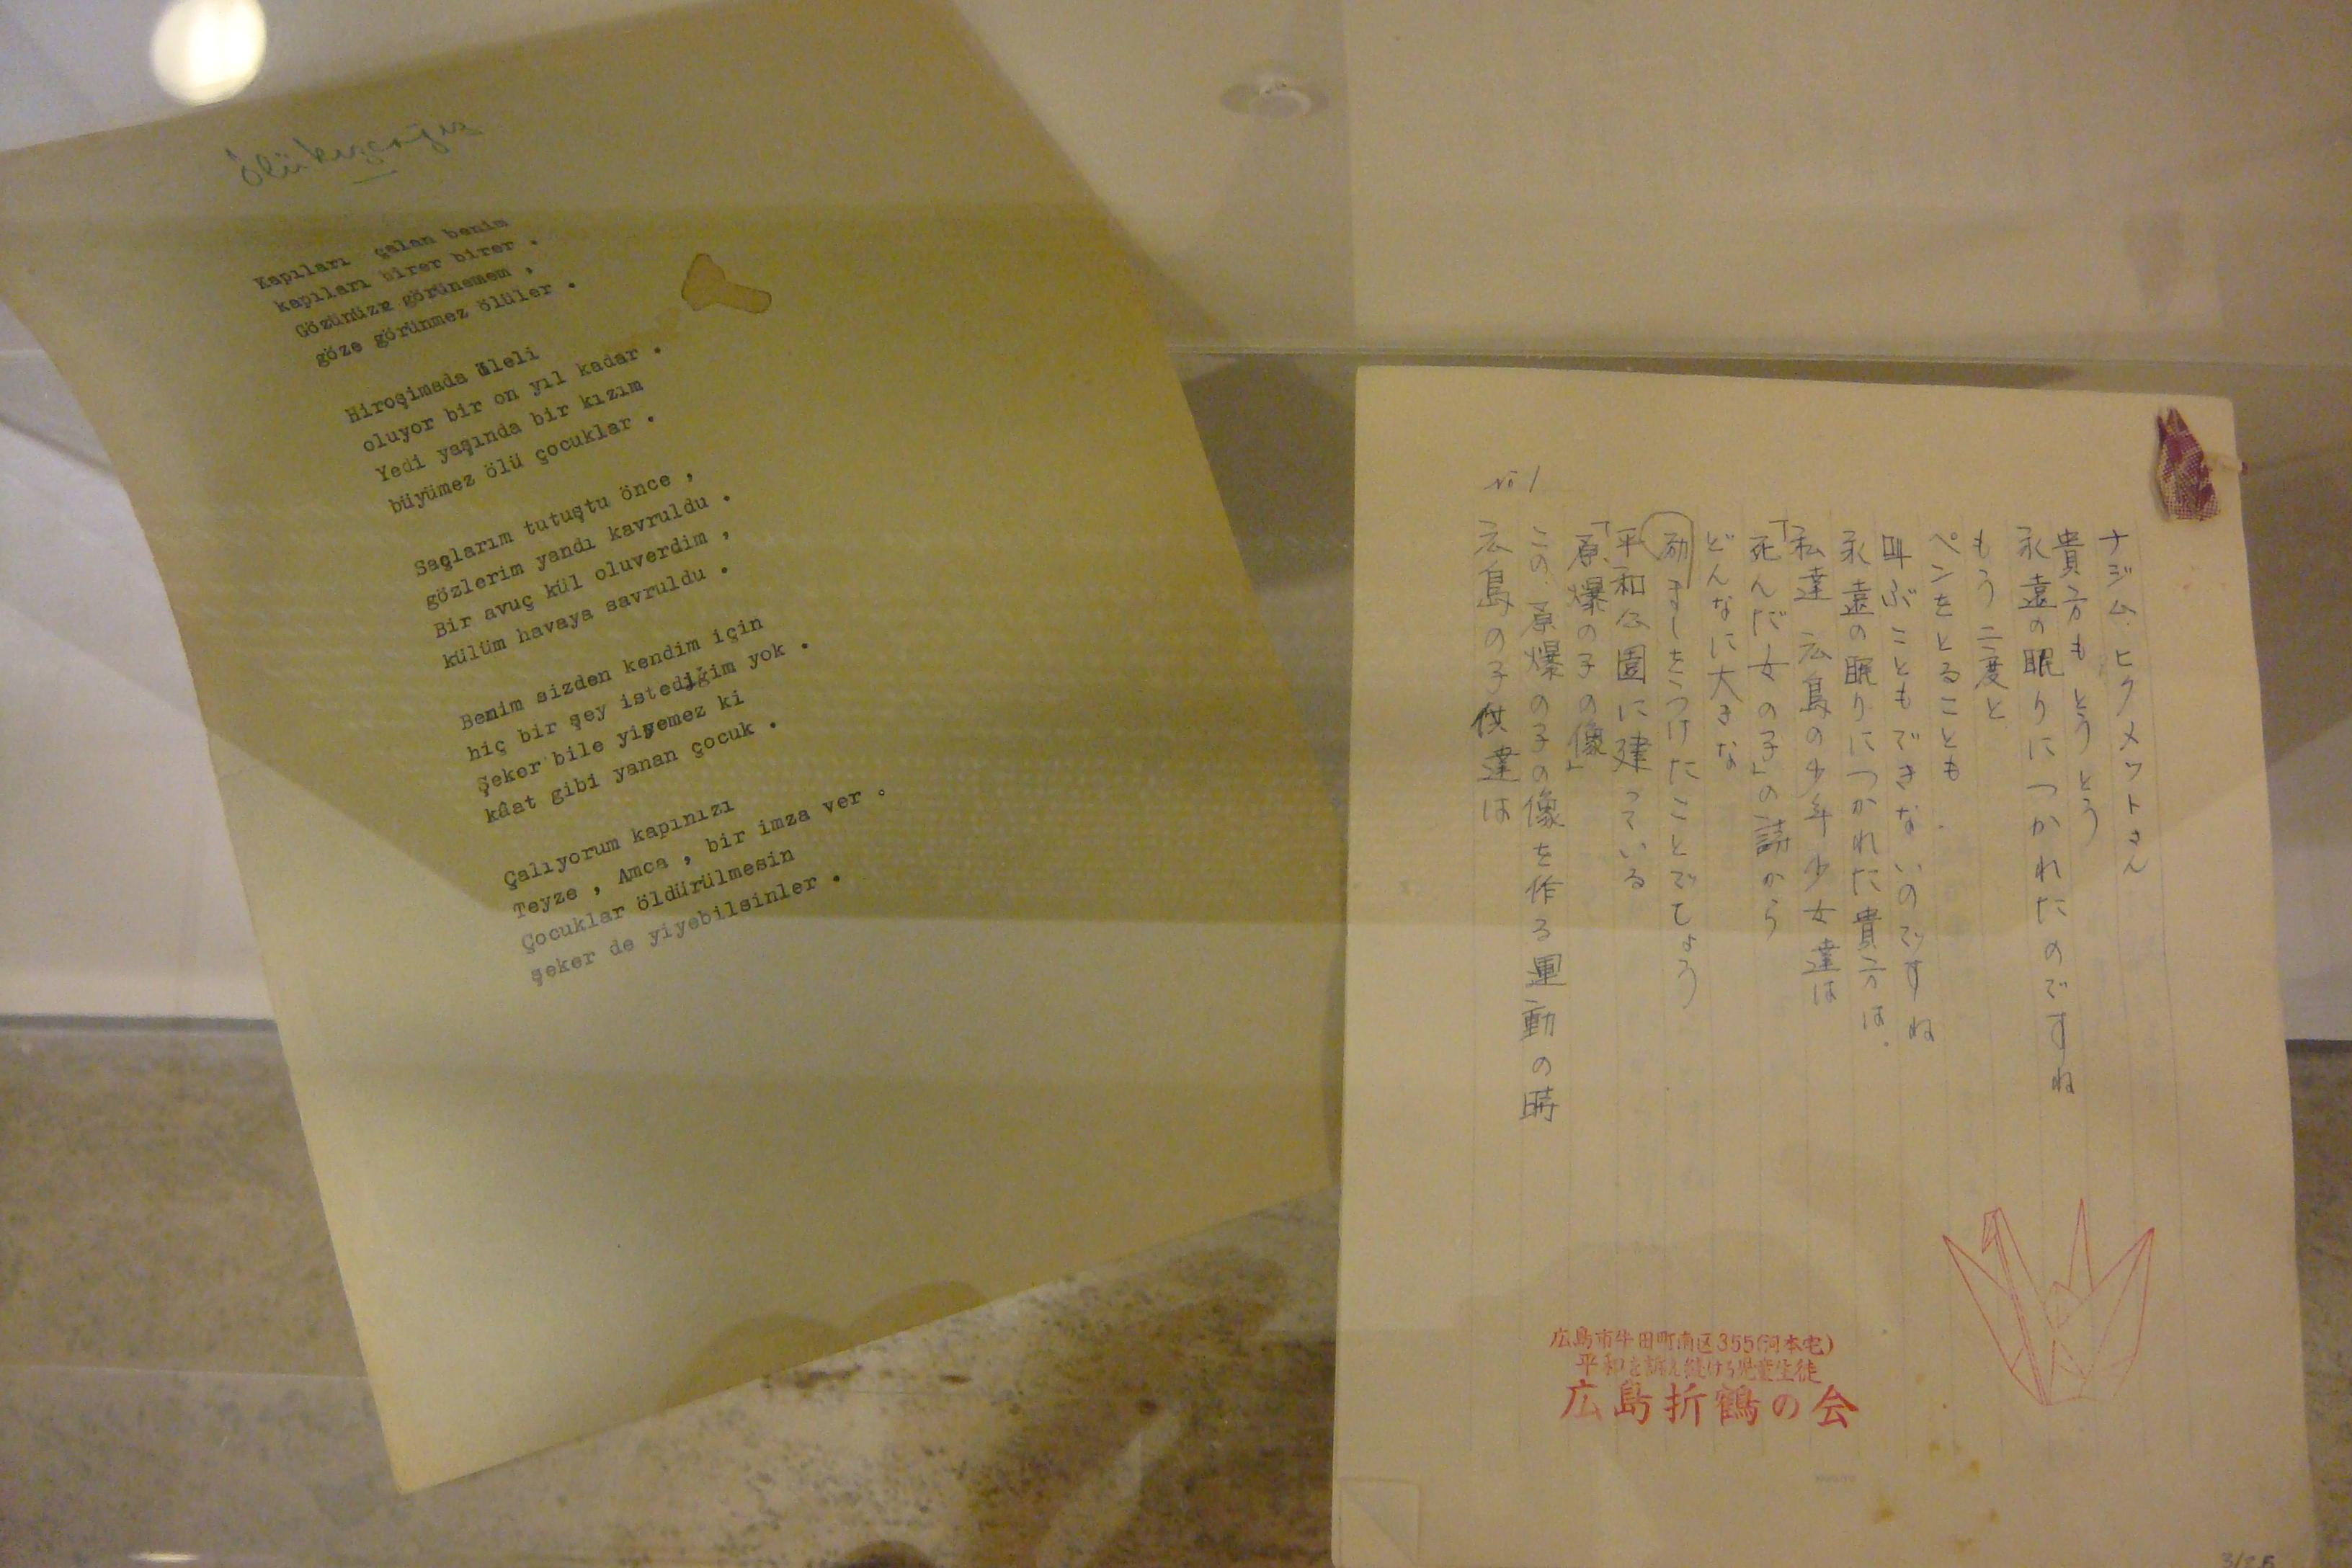 ölü kızcağız
Kapıları çalan benim
kapıları birer birer .
Gözünüze görünemem ,
göze görünmez ölüler .
Hiroşimada öleli
oluyor bir on yıl kadar .
Yedi yaşında bir kızım
büyümez ölü çocuklar .
Saçlarım tutuştu önce ,
gözlerim yandı kavruldu .
Bir avuç kül oluverdim ,
külüm havaya savruldu .
Benim sizden kendim için
hiç bir şey istediğim yok .
Şeker bile yiyemez ki
kâat gibi yanan çocuk .
Çalıyorum kapınızı
Teyze , Amca , bir imza ver .
Çocuklar öldürülmesin
şeker de yiyebilsinler .
ナジム・ヒクメットさん
貴方も とうとう
永遠の眠りにつかれたのですね
もう二度と
ペンをとることも
叫ぶこともできないのですね
永遠の眠りにつかれた貴方は、
私達 広島の少年少女達は
「死んだ女の子」の詩から
どんなに大きな
励ましをうけたことでしょう
平和公園に建っている
「原爆の子の像」
この、原爆の子の像を作る運動の時
広島の子供達は
No 1
広島市牛田町南区355(河本宅)
平和を訴え続ける児童生徒
広島折鶴の会